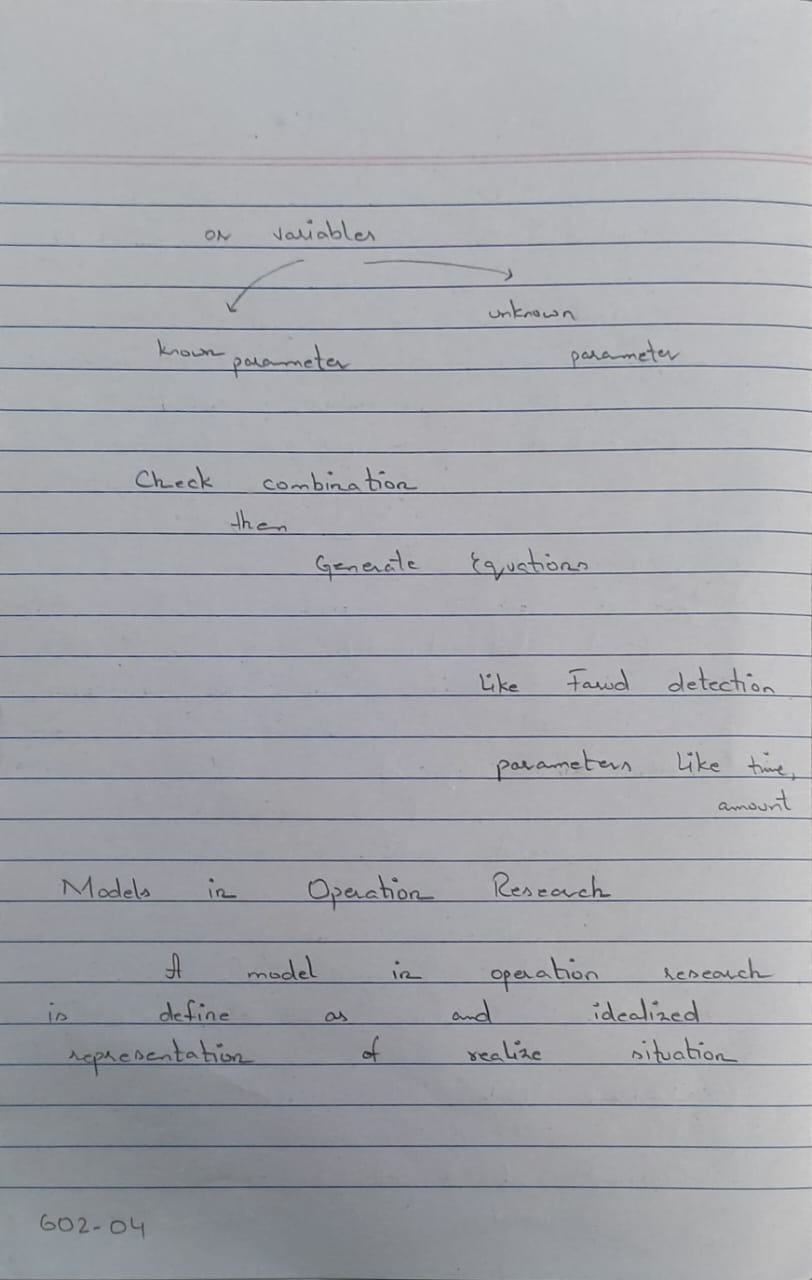 on variables
unknown
known parameter
parameter
Check combination
then
Generate Equations
Like Fawd detection
parameters like time,
amount
Models in Operation Research
A model in operation research
is define as and idealized
representation of realize situation
G02-04